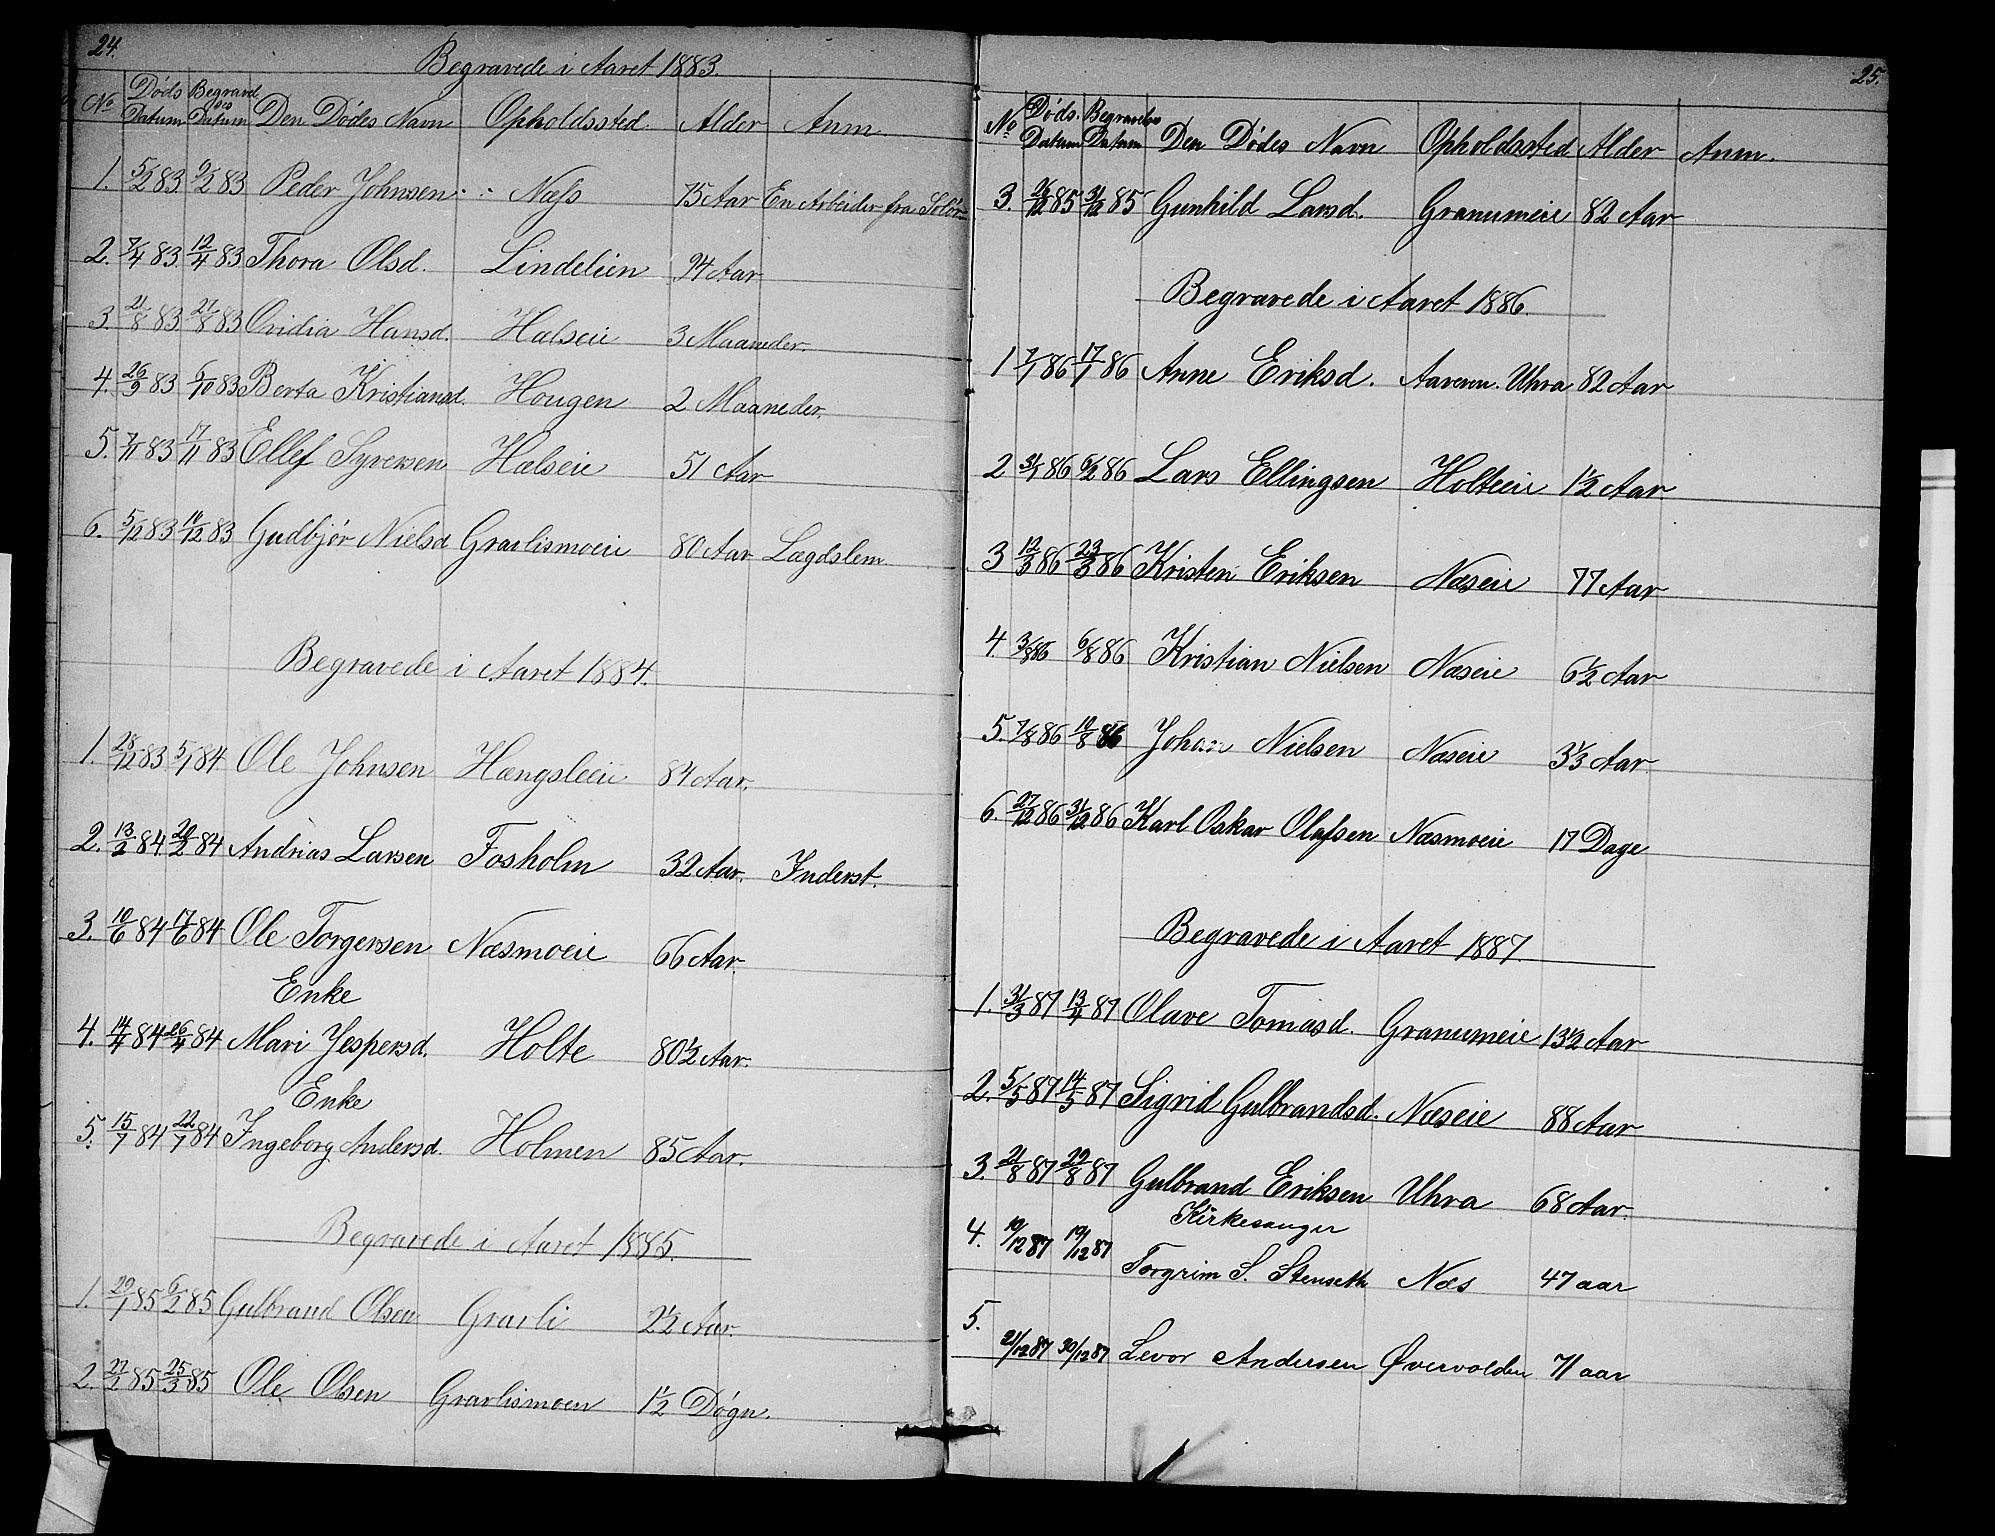 24.
Begravede i Aaret 1883.
No Døds Datum Begravelses Datum Den Dødes Navn Opholdssted Alder Anm.
1. 5/2 83 9/2 83 Peder Johnsen Næss 75 Aar En Arbeider fra Solør
2. 7/4 83 12/4 83 Thora Olsd. Lindelien 94 Aar
3. 21/8 83 27/8 83 Ovidia Hansd. Hælseie 3 Maaneder.
4. 26/9 83 6/10 83 Berta Kristiansd. Hougen 2 Maaneder.
5. 7/11 83 17/11 83 Ellef Syversen Hælseie 51 Aar
6. 5/12 83 10/12 83 Gudbjør Nielsd Gravlismoeie 80 Aar Lægdslem.
Begravede i Aaret 1884.
1. 28/12 83 5/1 84 Ole Johnsen Hængsleeie 84 Aar.
2. 13/2 84 20/2 84 Andrias Larsen Fosholm 32 Aar. Inderst.
3. 10/6 84 17/6 84 Ole Torgersen Næsmoeie 66 Aar.
Enke
4. 14/7 84 26/7 84 Mari Jespersd. Holte 80 1/2 Aar.
Enke
5. 15/7 84 22/7 84 Ingeborg Andersd. Holmen 85 Aar.
Begravede i Aaret 1885.
1. 29/1 85 6/2 85 Gulbrand Olsen Gravli 2 1/2 Aar.
2. 27/2 85 25/3 85 Ole Olsen Gravlismoen 1 1/2 Døgn.
25.
No Døds. Datum Begravelses Datum Den Dødes Navn Opholdssted Alder Anm.
3. 26/12 85 31/12 85 Gunhild Larsd. Granumeie 82 Aar
Begravede i Aaret 1886.
1 7/1 86 17/1 86 Anne Eriksd. Uhra 82 Aar
2 31/1 86 6/2 86 Lars Ellingsen Holteeie 1 1/2 Aar
3 12/3 86 23/3 86 Kristen Eriksen Næseie 77 Aar
4. 3/8 86 6/8 86 Kristian Nielsen Næseie 6 1/2 Aar
5. 7/8 86 10/8 86 Johan Nielsen Næseie 3 1/3 Aar.
6. 27/12 86 31/12 86 Karl Oskar Olafsen Næsmoeie 17 Dage
Begravede i Aaret 1887.
1. 31/3 87 13/4 87 Olave Tomasd. Granumeie 13 1/2 Aar
2. 5/5 87 14/5 87 Sigrid Gulbrandsd. Næseie 88 Aar
3. 21/8 87 29/8 87 Gulbrand Eriksen Uhra 68 Aar.
Kirkesanger
4. 10/12 87 19/12 87 Torgrim S. Stenseth Næs 47 aar
5.
21/12 87 30/12 87 Levor Andersen Øvervolden 71 aar